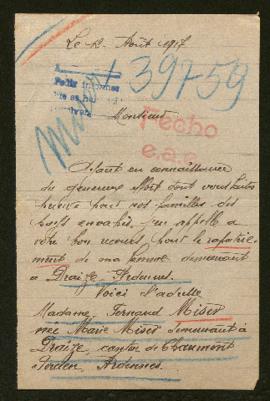 Le 12 Août 1917
39759
Monsieur
Fecho
e.a.
Etant en connaissance
de généreux effort dont vous faites
service pour nos familles des
pays envahis. J'en appelle à
votre bon recours pour le rapatrie-
ment de ma femme demeurant
à Draize. Ardennes.
Voici l'adresse
Madame Fernand Miser
née Marie Miser demeurant à
Draize, canton de Chaumont
Porcien, Ardennes.